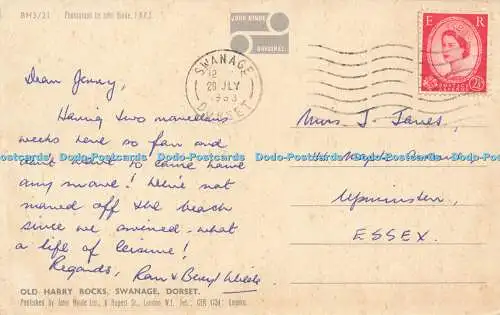 BH3/21 Photograph by John Hinde, F.R.P.S.
JOHN HINDE
ORIGINAL
SWANAGE
12
20 JLY
1963
DORSET
E R
POSTAGE REVENUE
2½D
Dear Jenny,
Having two marvellous
weeks here so far and
don't want to come home
any more! We've not
moved off the beach
since we arrived - what
a life of leisure!
Regards, Ron & Beryl
Miss J. Jones,
Upminster,
ESSEX.
Dodo-Postcards Dodo-Postcards Dodo-Postcards Dodo-Postcards Dodo-Postcards
OLD HARRY ROCKS, SWANAGE, DORSET.
Published by John Hinde Ltd., 6 Rupert St., London W.1. Tel.: GER 1234 London.